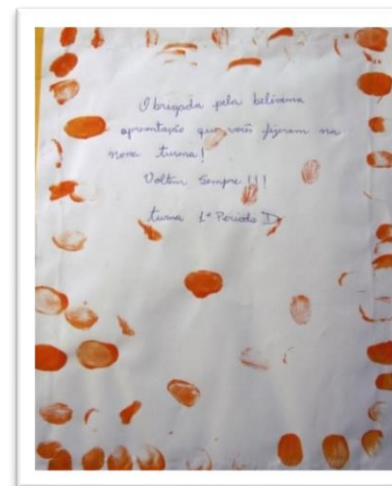 Obrigada pela belíssima
apresentação que vocês fizeram na
nossa turma!
Voltem Sempre!!!
turma 1º Periodo D